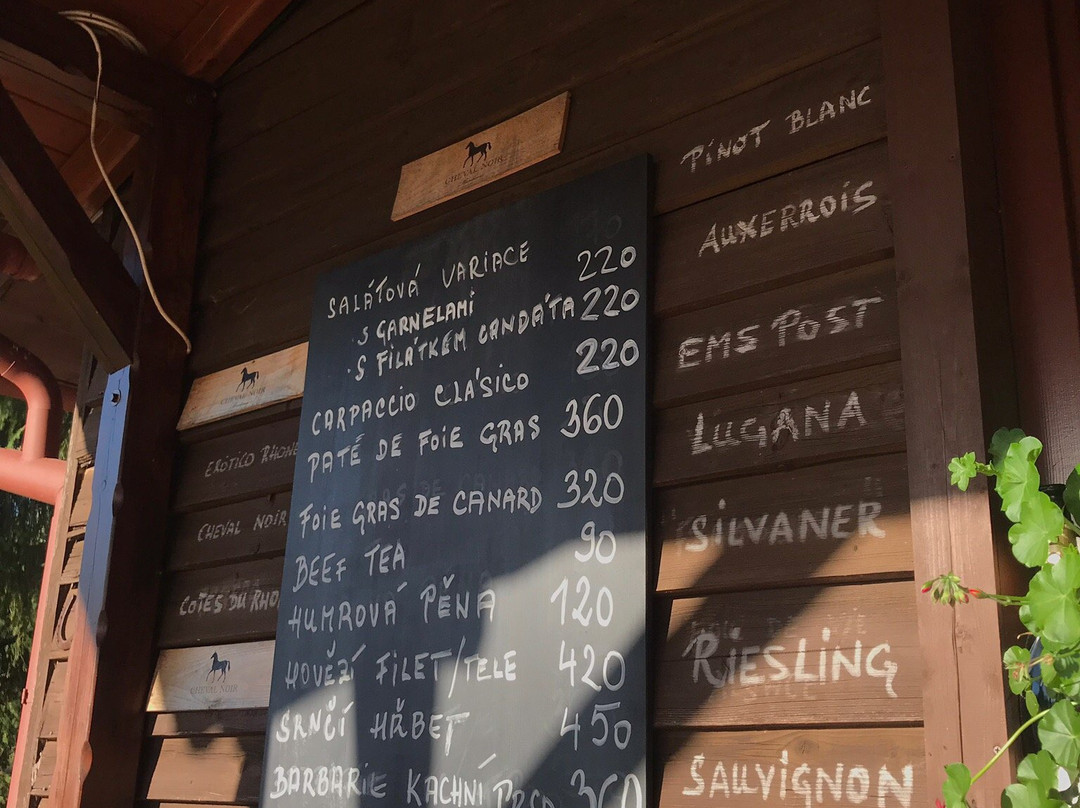 CHEVAL NOIR
SALÁTOVÁ VARIACE 220
· S GARNELAMI 220
· S FILÁTKEM CANDÁTA 220
CARPACCIO CLÁSICO
PATÉ DE FOIE GRAS 360
FOIE GRAS DE CANARD 320
BEEF TEA 90
HUMROVÁ PĚNA 120
HOVĚZÍ FILET/TELE 420
SRNČÍ HŘBET 450
BARBARIE KACHNÍ 360
CHEVAL NOIR
EROTICO RHONE
CHEVAL NOIR
COTES DU RHO
CHEVAL NOIR
PINOT BLANC
AUXERROIS
EMS POST
LUGANA
SILVANER
RIESLING
SAUVIGNON